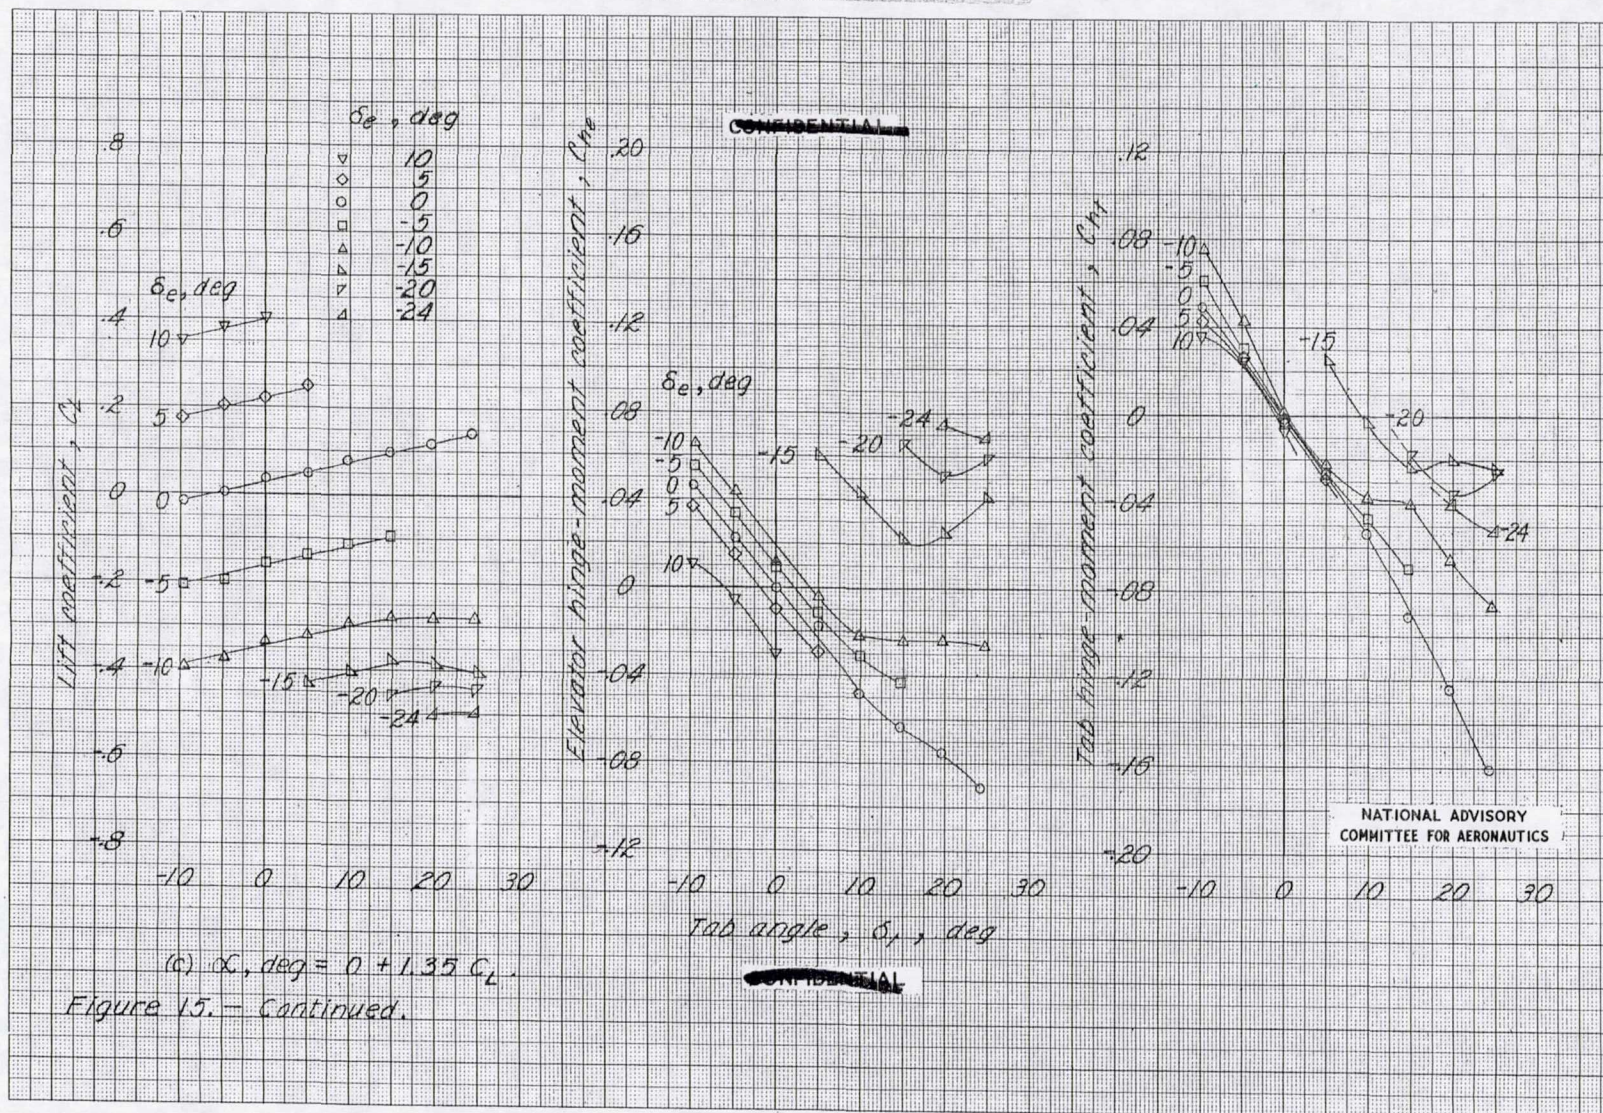 CONFIDENTIAL
δe, deg
10
5
0
-5
-10
-15
-20
-24
Lift coefficient, CL
.8
.6
.4
.2
0
-.2
-.4
-.6
-.8
δe, deg
10
5
0
-5
-10
-15
-20
-24
-10 0 10 20 30
Elevator hinge-moment coefficient, Che
.20
.16
.12
.08
.04
0
-.04
-.08
-.12
δe, deg
-10
-5
0
5
10
-15
-20
-24
-10 0 10 20 30
Tab hinge-moment coefficient, Cht
.12
.08
.04
0
-.04
-.08
-.12
-.16
-.20
-10
-5
0
5
10
-15
-20
-24
-10 0 10 20 30
NATIONAL ADVISORY
COMMITTEE FOR AERONAUTICS
Tab angle, δt, deg
(c) α, deg = 0 + 1.35 CL.
Figure 15.— Continued.
CONFIDENTIAL